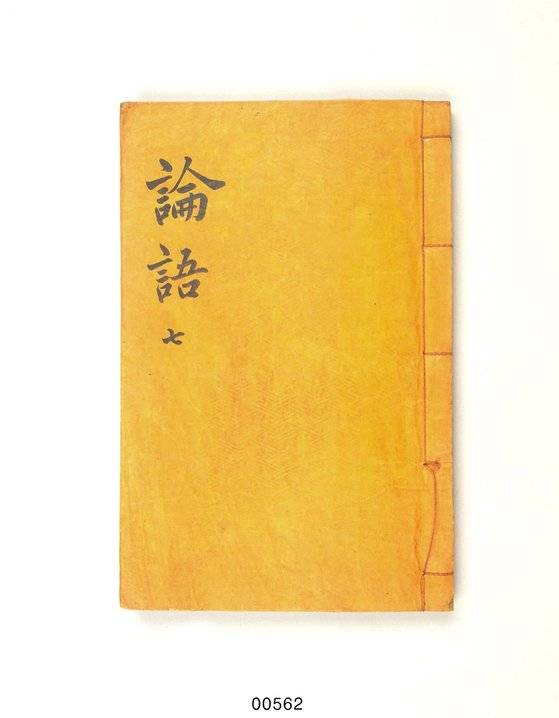 論語
七
00562